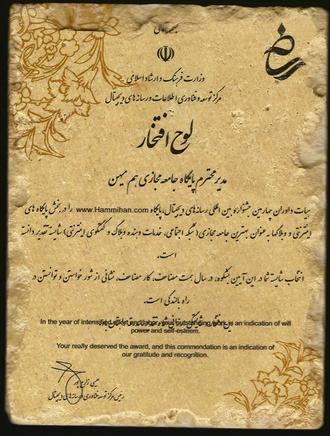 وزارت فرهنگ و ارشاد اسلامی
مرکز توسعه و فناوری اطلاعات و رسانه‌های دیجیتال
لوح افتخار
مدیر محترم پایگاه جامعه مجازی هم میهن
هیات داوران چهارمین جشنواره بین المللی رسانه‌های دیجیتال، پایگاه www.Hammihan.com را در بخش پایگاه های
اینترنتی و وبلاگها به عنوان بهترین جامعه مجازی (شبکه اجتماعی، خدمات دهنده وبلاگ و گفتگوی اینترنتی) شایسته تقدیر دانسته
است.
انتخاب شایسته شما در این آیین باشکوه، در سال همت مضاعف، کار مضاعف، نشانی از شور خواستن و توانستن در
راه بالندگی است.
In the year of intensified is an indication of will
power and self-esteem.
Your really deserved the award, and this commendation is an indication of
our gratitude and recognition.
رییس مرکز توسعه فناوری و رسانه‌های دیجیتال